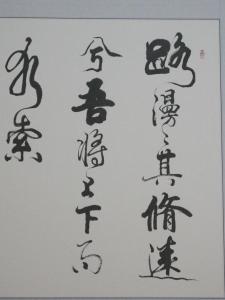 路漫〻其脩遠
兮吾將上下而
求索